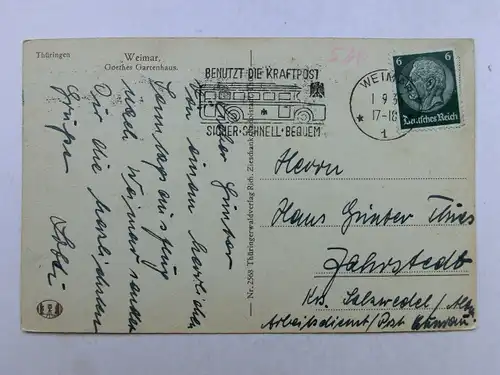 Thüringen
Weimar,
Goethes Gartenhaus.
BENUTZT DIE KRAFTPOST
SICHER·SCHNELL·BEQUEM
WEIMAR
1 9 3
17-18
* 1
6 6
Deutsches Reich
Lieber Günter
Von einem herrlichen
Samstagausflug
nach Weimar senden
Dir die herzlichsten
Grüße
Nr. 2568 Thüringerwaldverlag Rich. Zieschank
Herrn
Hans Günter Thies
Jahrstedt
Kr. Salzwedel / Altm.
Arbeitsdienst / Post